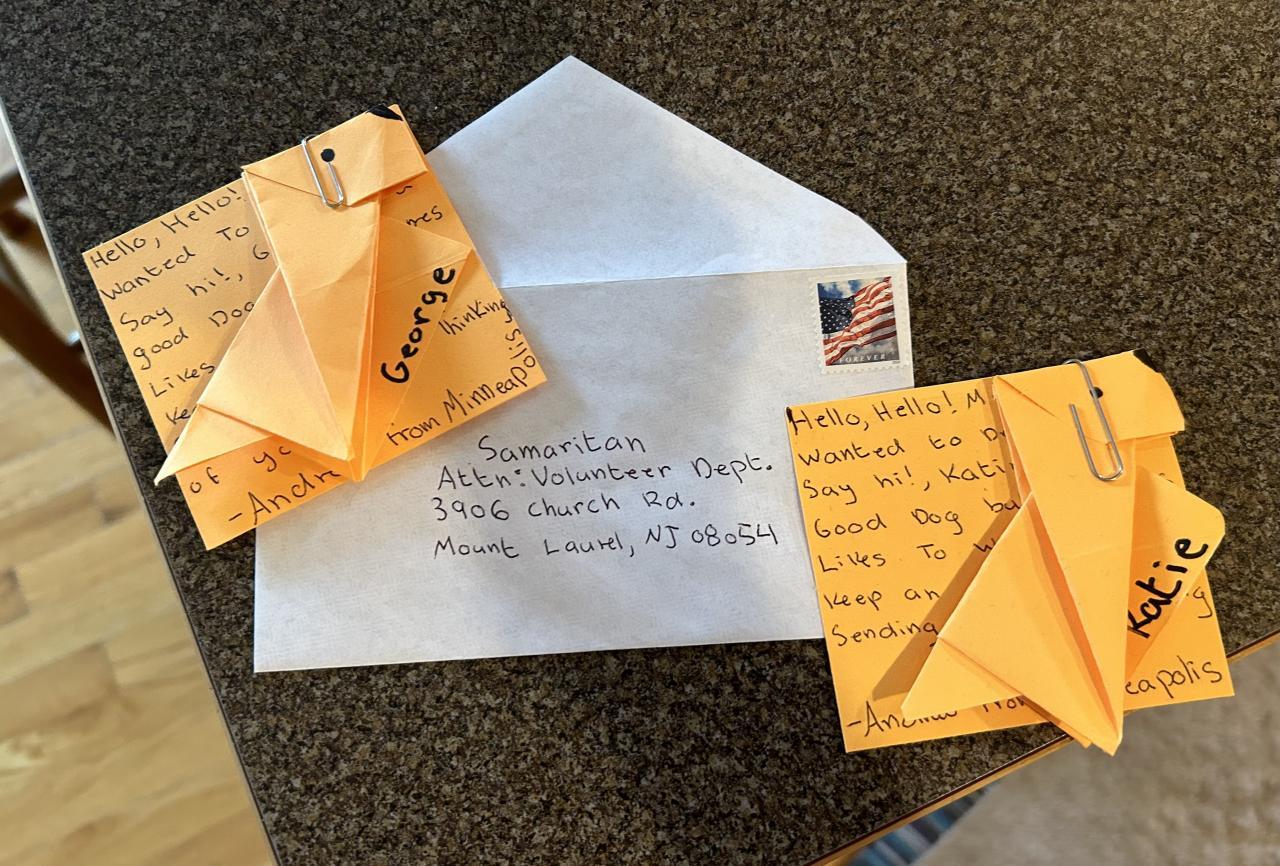 Hello, Hello!
Wanted To
Say hi!, G
good Dog
Likes
Ke
of yo
-Andre
mes
George
Thinking
from Minneapolis
FOREVER
Samaritan
Attn: Volunteer Dept.
3906 Church Rd.
Mount Laurel, NJ 08054
Hello, Hello! M
Wanted to D
Say hi!, Kati
Good Dog ba
Likes To W
Keep an
Sending
-Andre from
Katie
g
eapolis